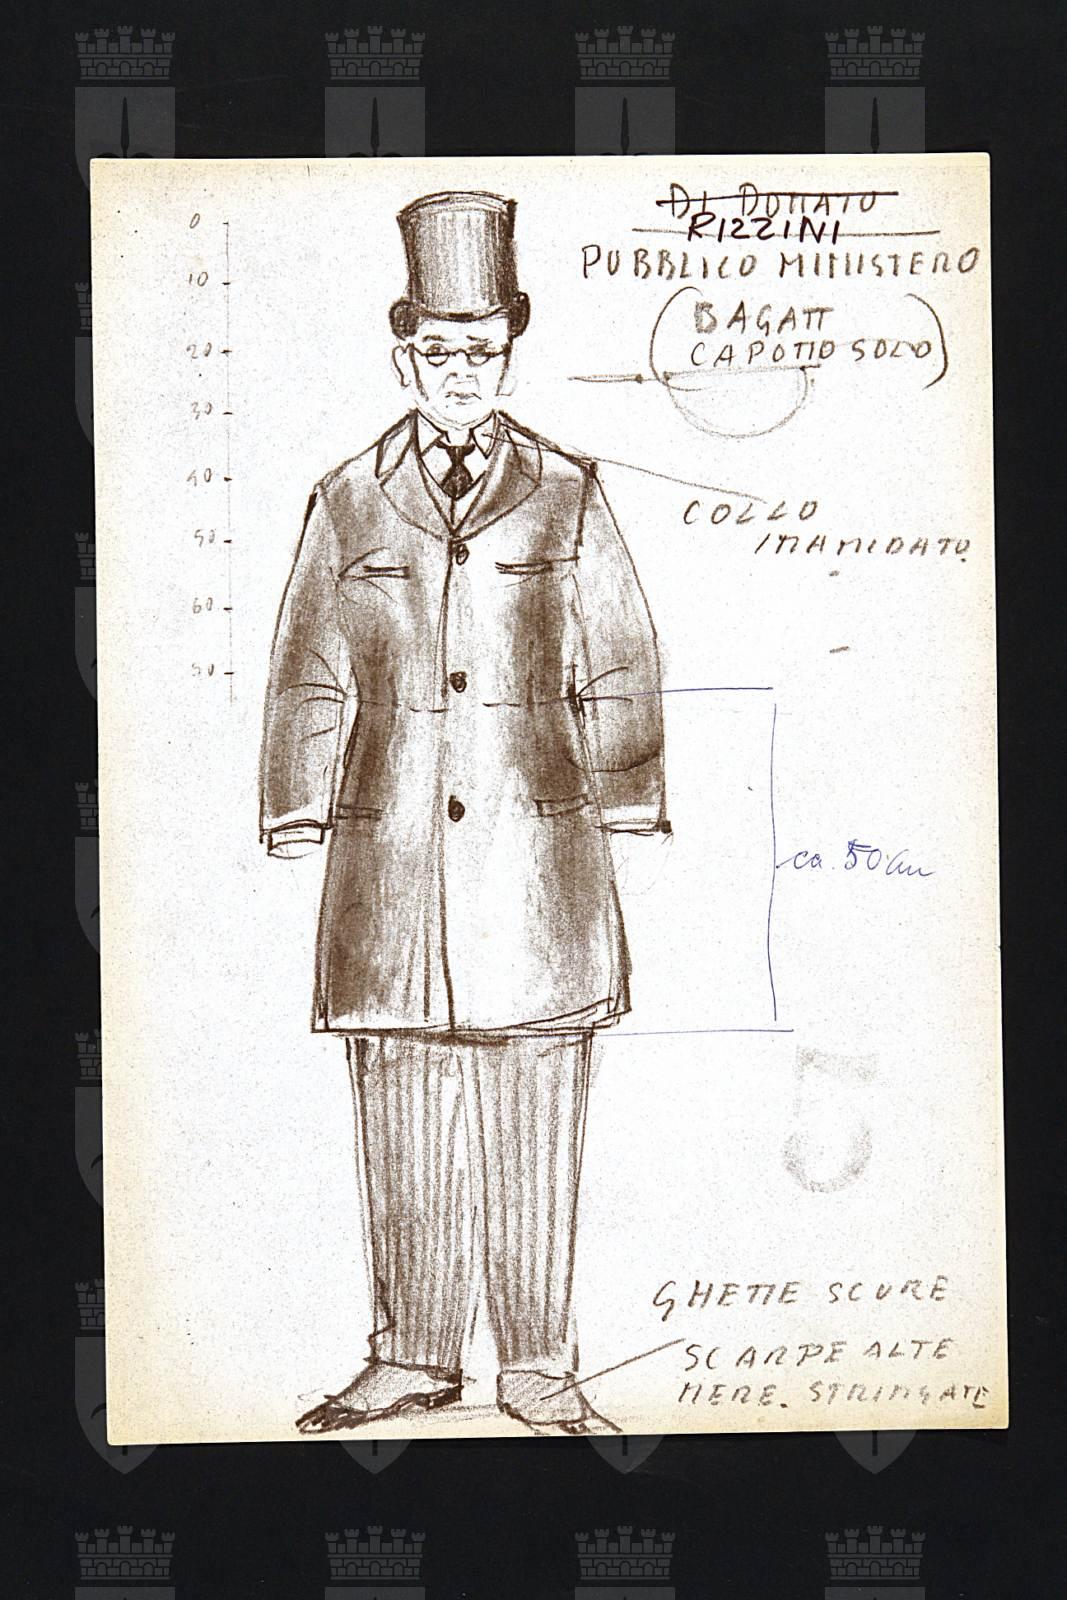 DI DONATO
RIZZINI
PUBBLICO MINISTERO
(BAGATT
CAPOTTO SOLO)
0
10
20
30
40
50
60
COLLO
INAMIDATO
ca. 50 cm
5
GHETTE SCURE
SCARPE ALTE
NERE. STRINGATE